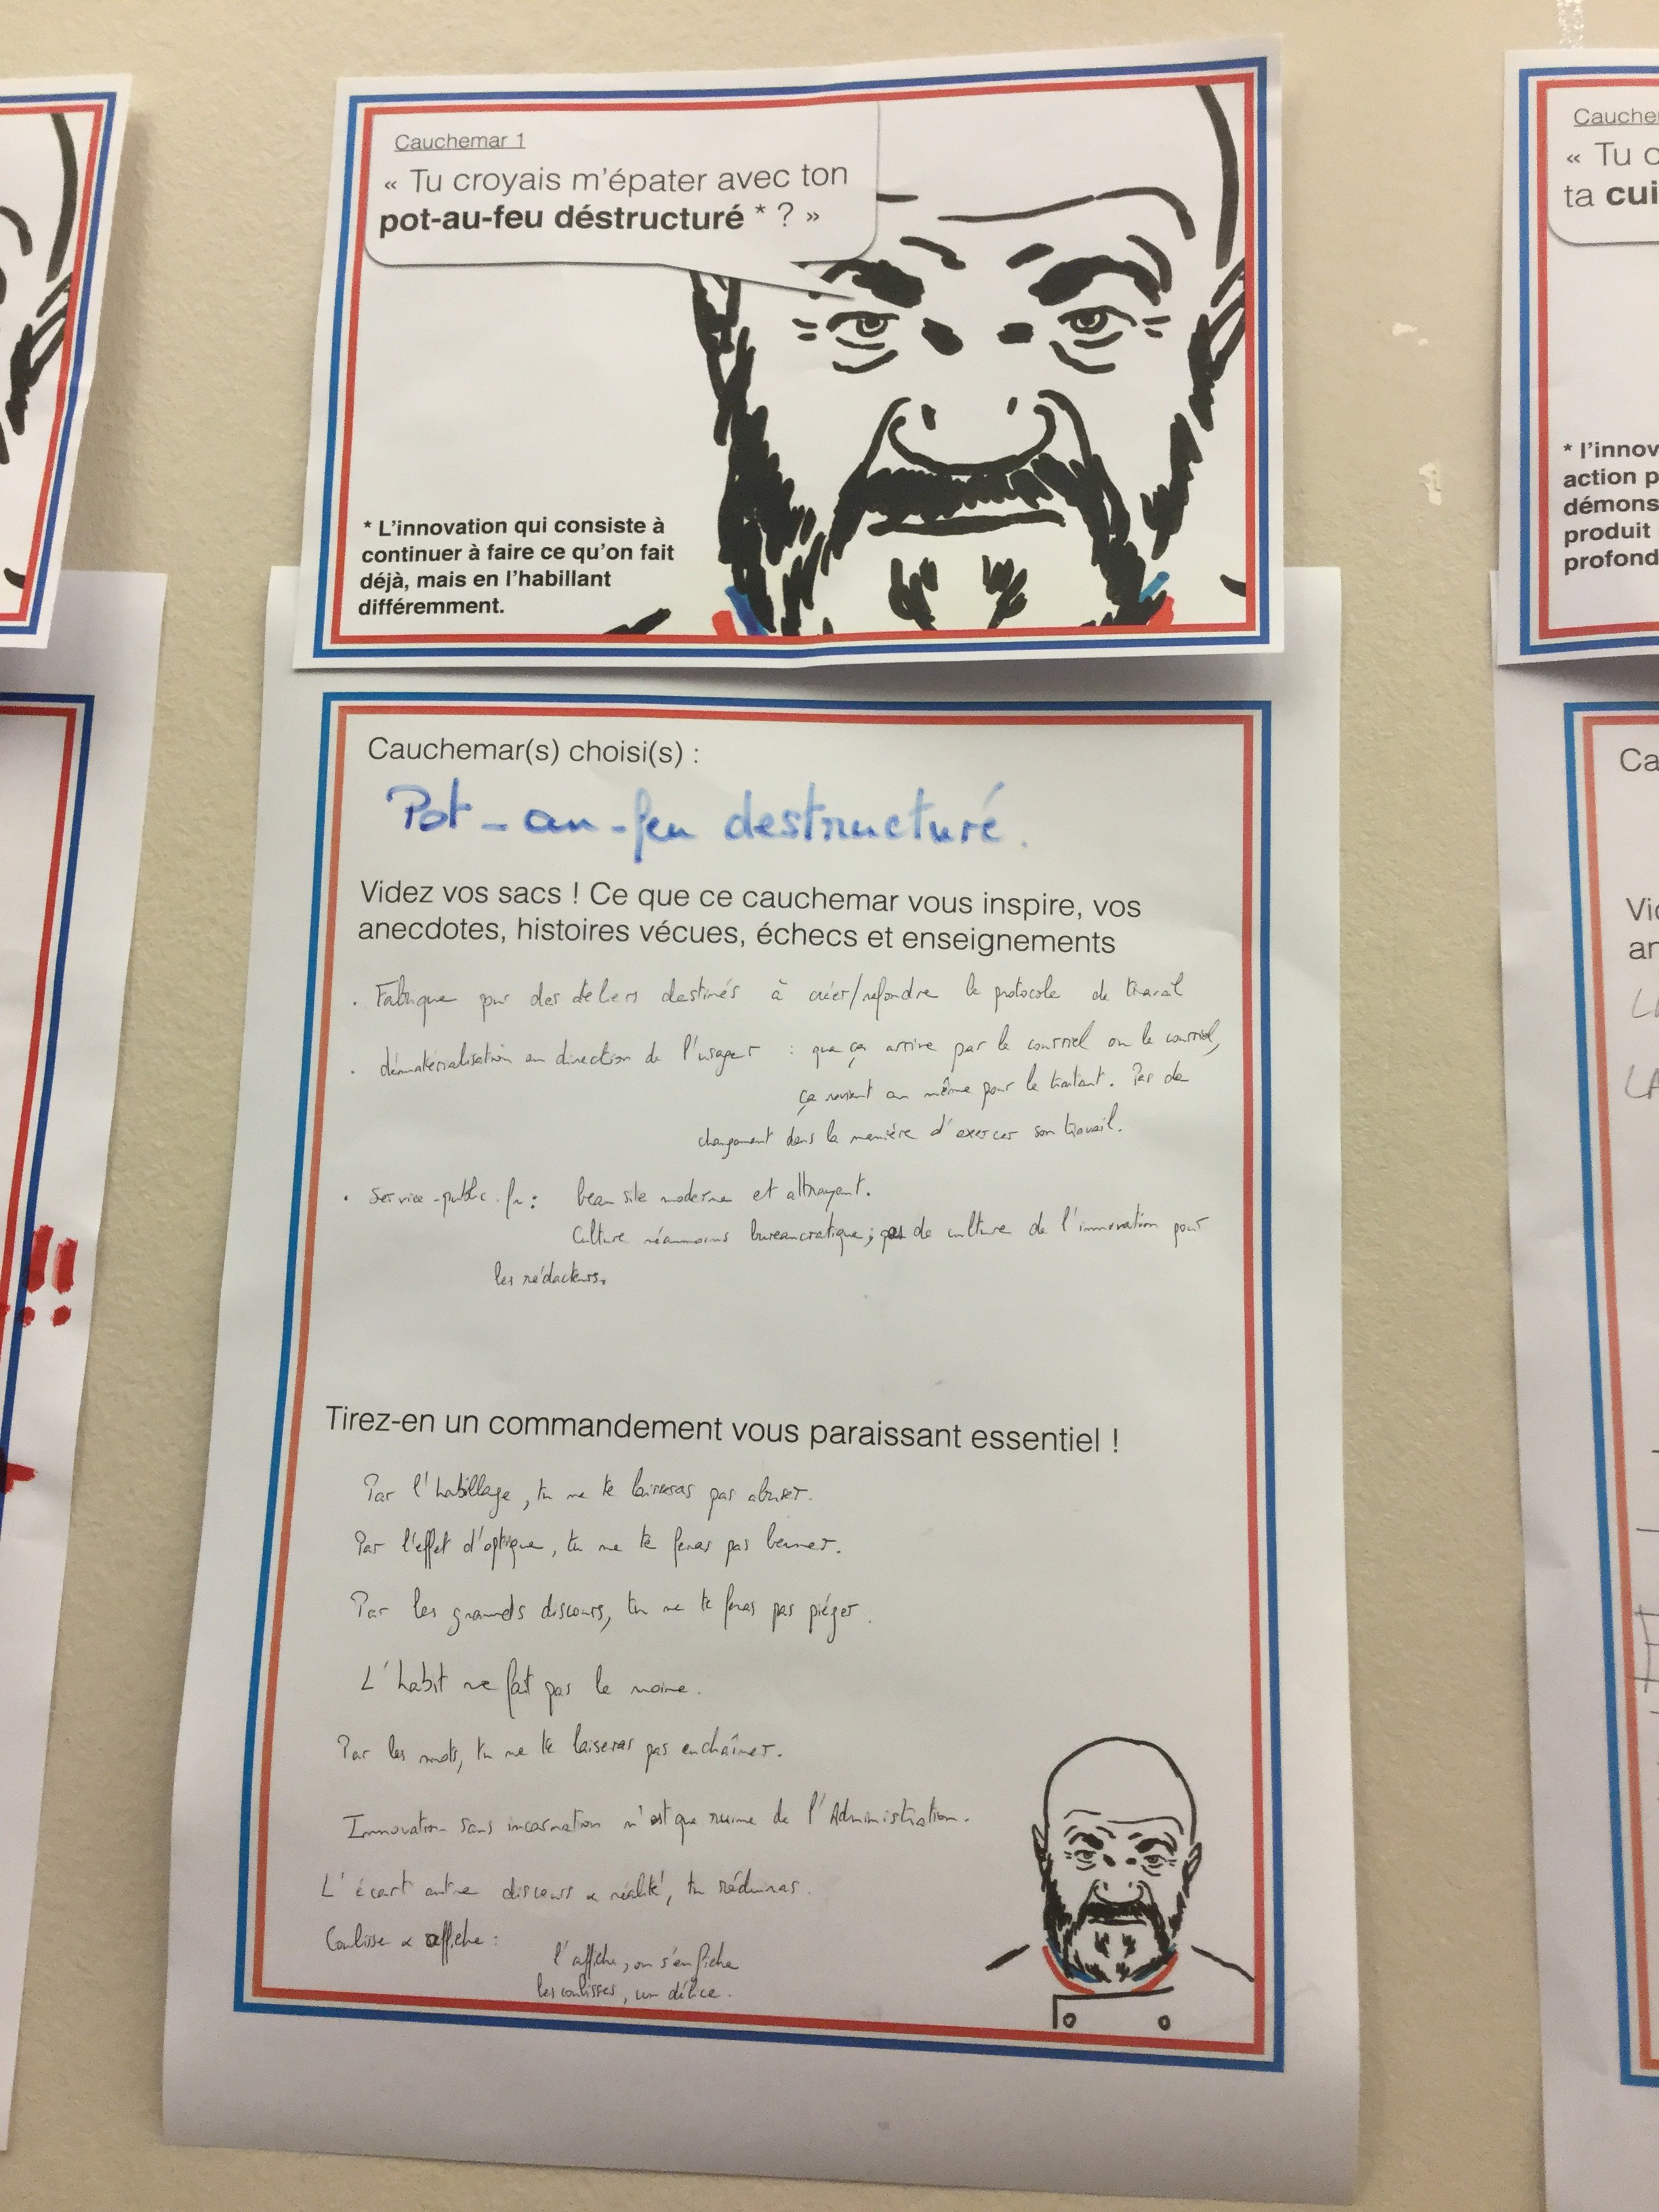 Cauchemar 1
« Tu croyais m'épater avec ton
pot-au-feu déstructuré * ? »
* L'innovation qui consiste à
continuer à faire ce qu'on fait
déjà, mais en l'habillant
différemment.
Cauchemar(s) choisi(s) :
Pot-au-feu destructuré.
Videz vos sacs ! Ce que ce cauchemar vous inspire, vos
anecdotes, histoires vécues, échecs et enseignements
. Fabrique pour des ateliers destinés à créer/refondre le protocole de travail
. dématérialisation en direction de l'usager : que ça arrive par le courriel ou le courriel,
ça revient au même pour le traitant. Pas de
changement dans la manière d'exercer son travail.
. Service-public.fr : beau site moderne et attrayant.
Culture néanmoins bureaucratique ; pas de culture de l'innovation pour
les rédacteurs.
Tirez-en un commandement vous paraissant essentiel !
Par l'habillage, tu ne te laisseras pas abuser.
Par l'effet d'optique, tu ne te feras pas berner.
Par les grands discours, tu ne te feras pas piéger.
L'habit ne fait pas le moine.
Par les mots, tu ne te laiseras pas enchaîner.
Innovation sans incarnation n'est que ruine de l'Administration.
L'écart entre discours & réalité, tu réduiras.
Coulisse & affiche :
l'affiche, on s'en fiche
les coulisses, un délice.
Cauche
« Tu c
ta cui
* l'innov
action p
démons
produit
profond
Ca
Vid
an
!!